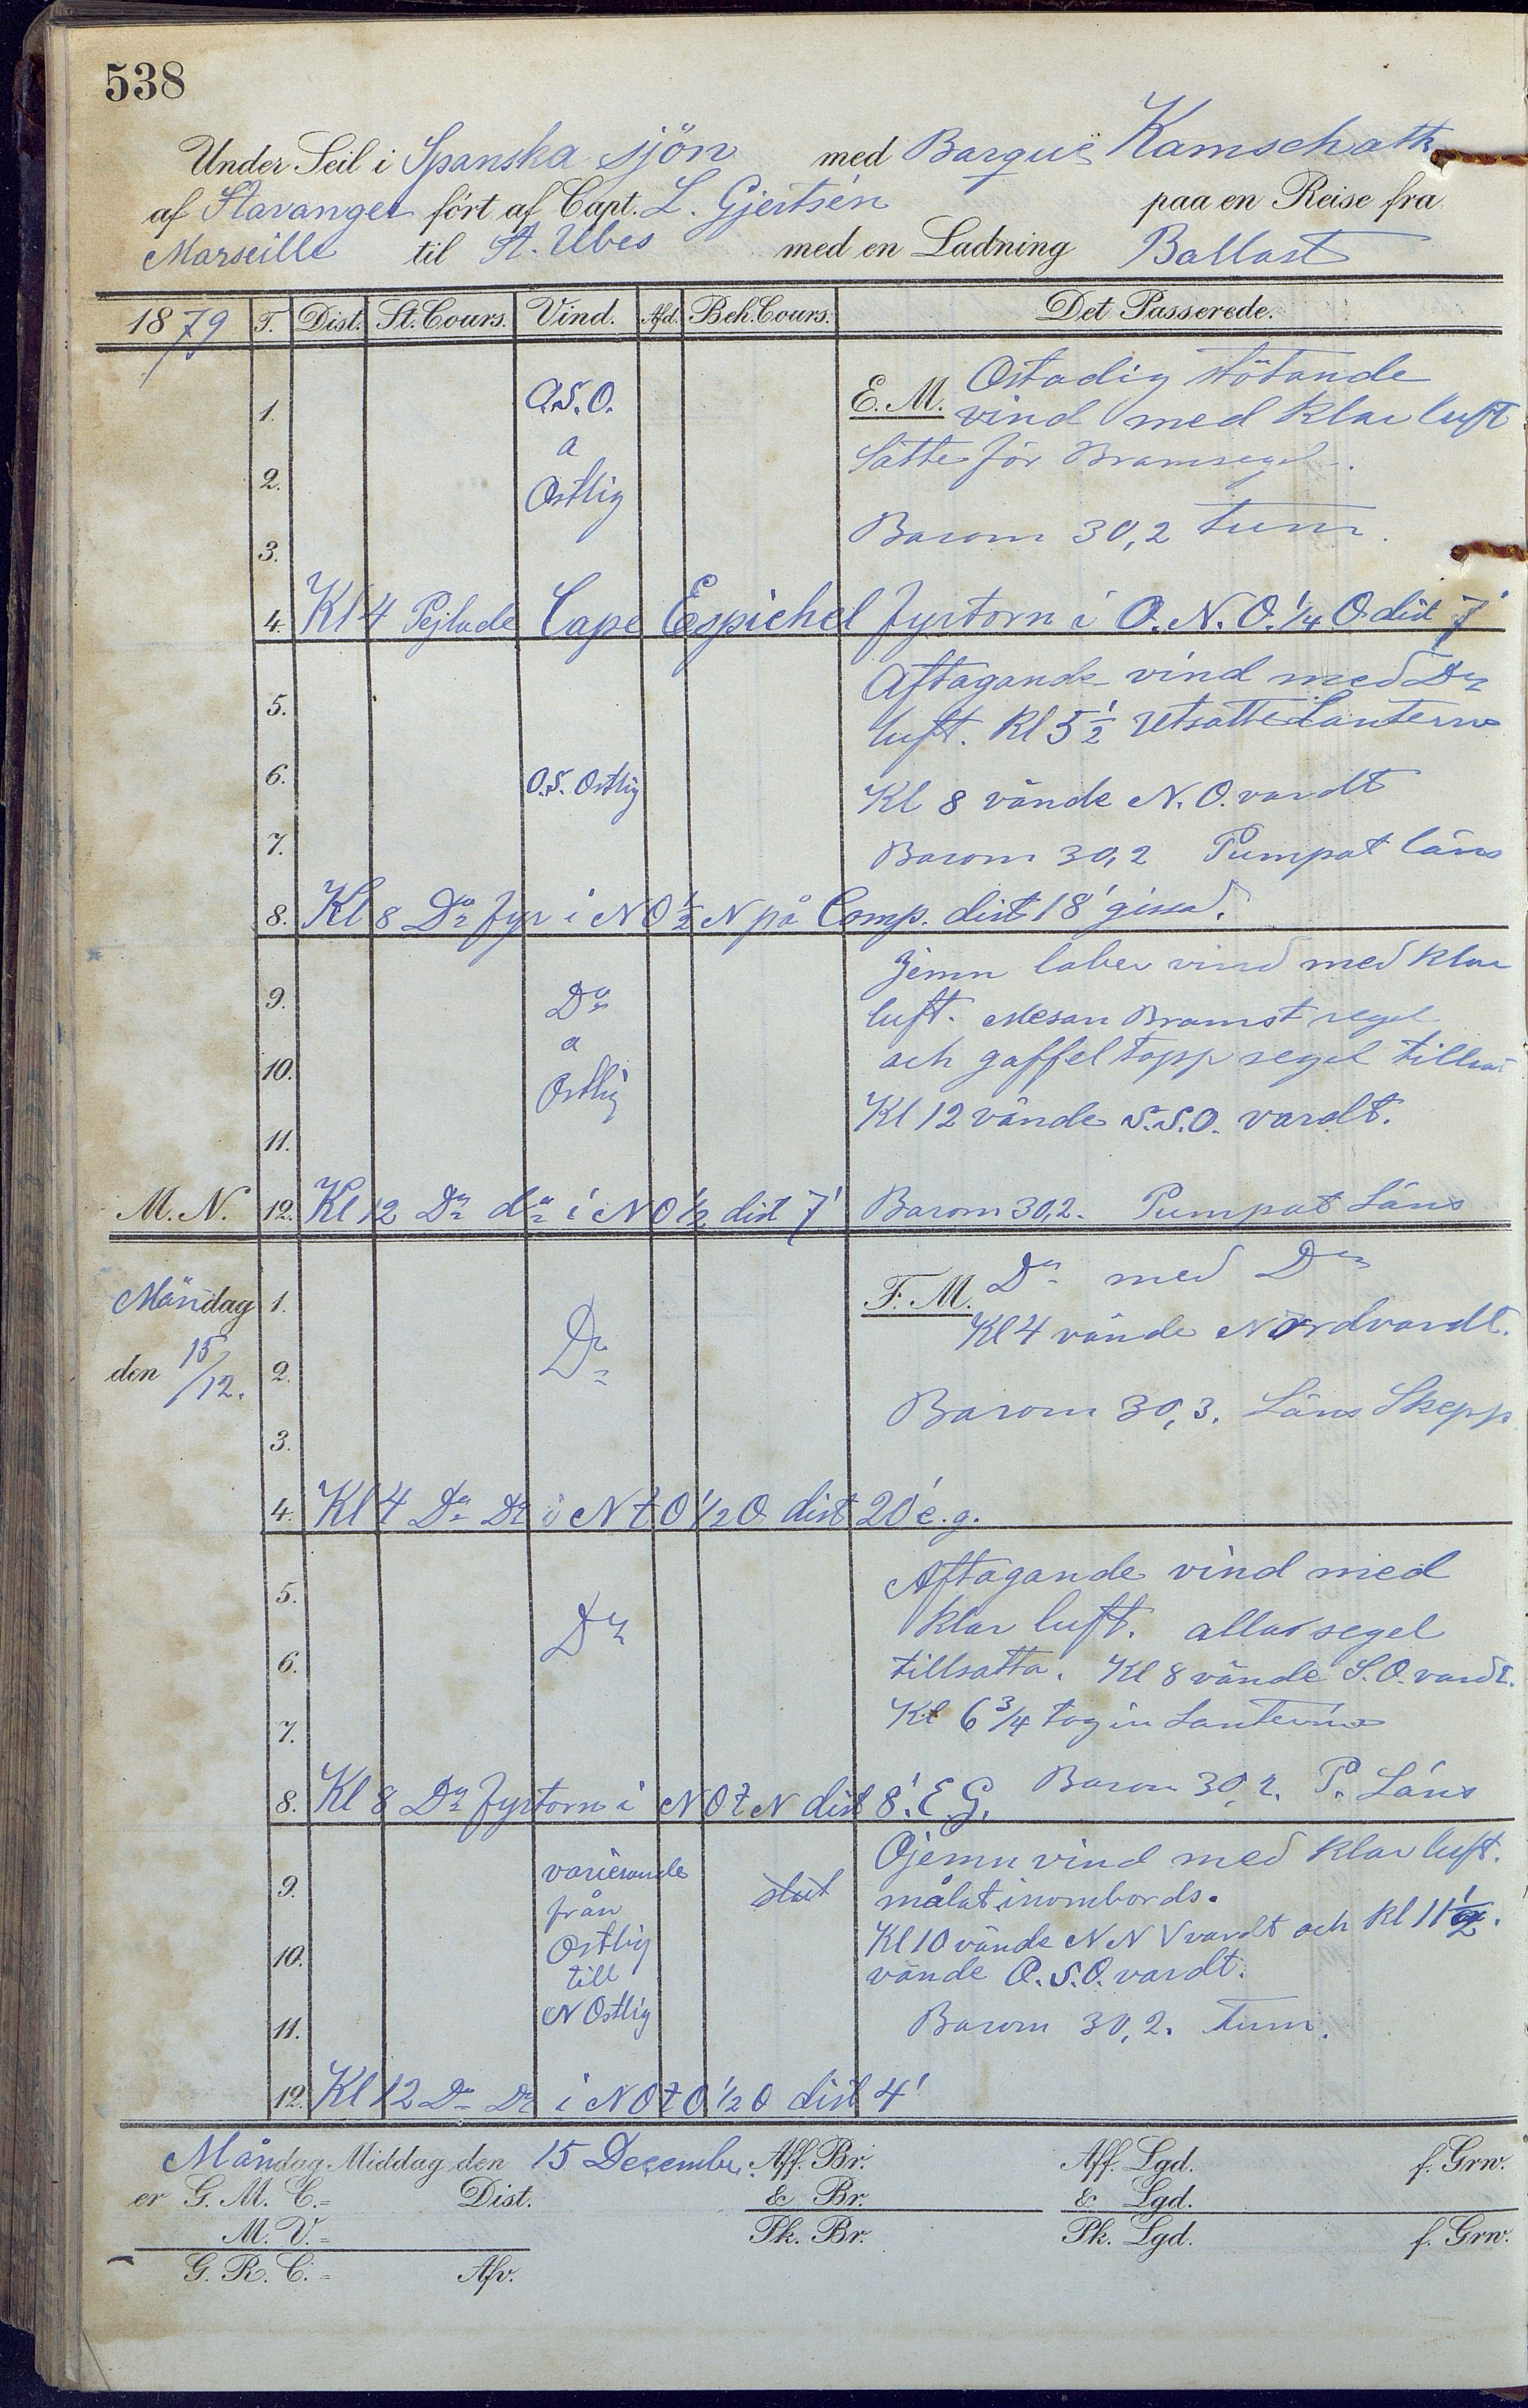 538
Under Seil i Spanska sjön med Barque Kamschatk
af Stavanger ført af Capt. L. Gjertsén paa en Reise fra
Marseille til St. Ubes med en Ladning Ballast
1879 T. Dist. St. Cours. Vind. Afd. Beh. Cours. Det Passerede.
E. M. Ostadig stötande
1. O.S.O. vind med klar luft
a Sätte för Bramsegel.
2. Ostlig
Barom 30,2 tum.
3.
4. Kl 4 Pejlade Cape Espichel fyrtorn i O.N.O. 1/4 O dist 7'
Aftagande vind med Do
5. luft. Kl 5 1/2 Utsatte Lanterna
6. O.S. Ostlig Kl 8 vände N.O. vardt
7. Barom 30,2 Pumpat läns
8. Kl 8 Do fyr i NO 1/2 N på Comp. dist 18' gissad.
Jemn laber vind med klar
9. Do luft. Mesan Bramst segel
a och gaffel topp segel
10. Ostlig Kl 12 vände S.S.O. vardt.
11.
M. N. 12. Kl 12 Do do i NO 1/2 dist 7' Barom 30,2. Pumpat Läns
Måndag 1. F. M. Do med Do
Kl 4 vände Nordvardt.
den 15/12. 2. Do
Barom 30,3. Läns Skepp
3.
4. Kl 4 Do Do i N t O 1/2 O dist 20' e.g.
Aftagande vind med
5. klar luft. alla segel
6. Do tillsatta. Kl 8 vände S.O. vardt.
7. Kl 6 3/4 tog in Lanterna
8. Kl 8 Do fyrtorn i NO t N dist 8'. E.G. Barom 30,2. P. Läns
Ojemn vind med klar luft.
9. varierande målat inombords.
från Kl 10 vände N N V vardt och Kl 11 1/2.
10. Ostlig vände O.S.O. vardt.
till
11. N Ostlig Barom 30,2. tum.
12. Kl 12 Do Do i NO t O 1/2 O dist 4'
Måndag Middag den 15 December. Aff. Br. Aff. Lgd. f. Grw.
er G. M. C.= Dist. & Br. & Lgd.
M. V.= Pk. Br. Pk. Lgd. f. Grw.
G. R. C.= Afv.